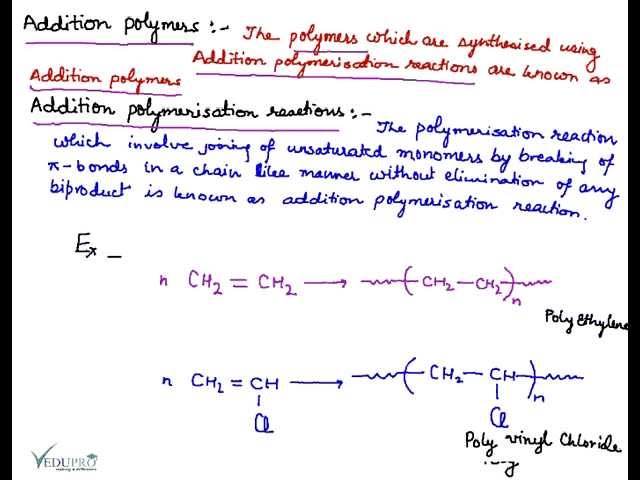 Addition polymers :- The polymers which are synthesised using
Addition polymerisation reactions are known as
Addition polymers
Addition polymerisation reactions :- The polymerisation reaction
which involve joining of unsaturated monomers by breaking of
π-bonds in a chain like manner without elimination of any
biproduct is known as addition polymerisation reaction.
Ex –
n CH₂ = CH₂ ⟶ ( CH₂ – CH₂ )n
Poly Ethylene
n CH₂ = CH ⟶ ( CH₂ – CH )n
Cl Cl
Poly vinyl Chloride
EDUPRO